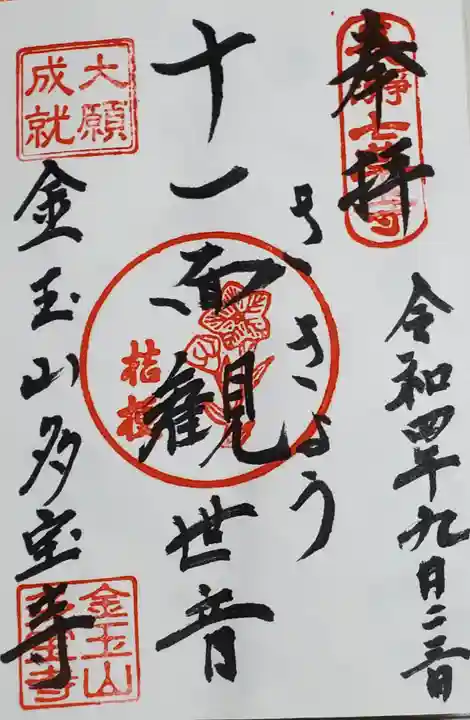 奉拝
瀞七草寺
令和四年九月二三日
ききょう
十一面観世音
桔梗
大願
成就
金玉山多宝寺
金玉山
多宝寺